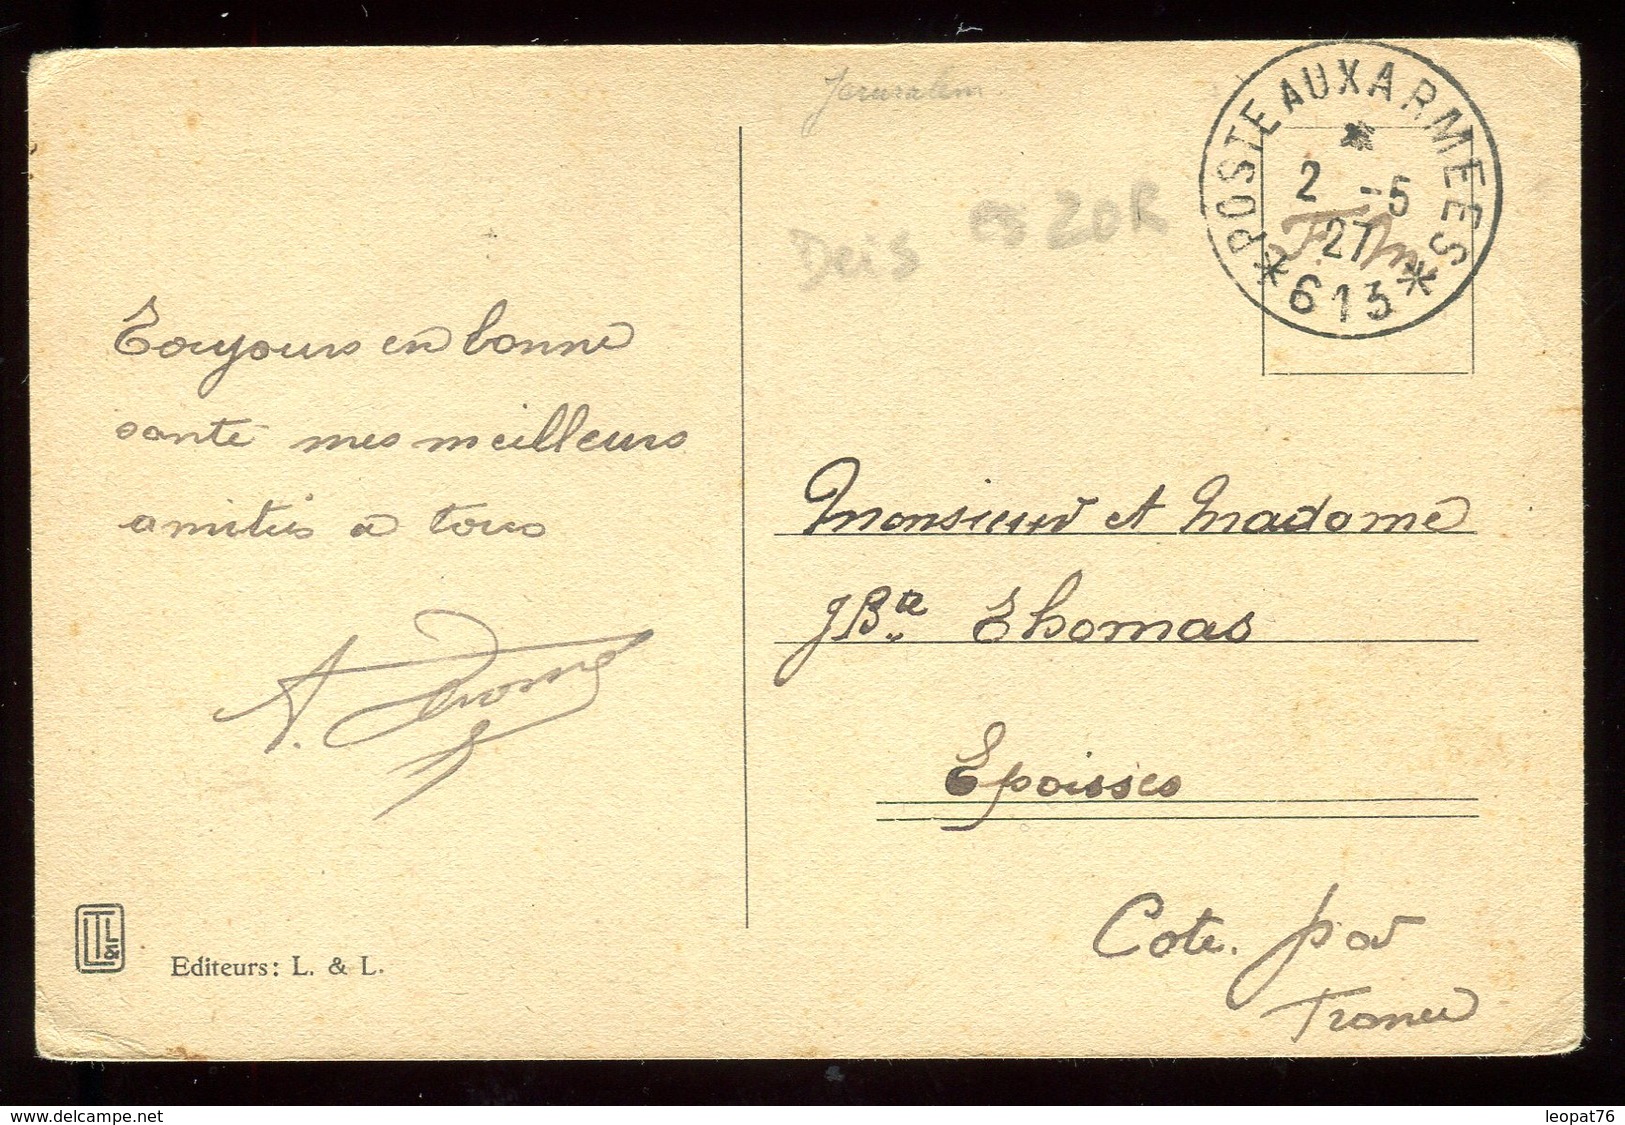 Jerusalem
POSTE AUX ARMEES
2 -5
27
F. M.
* 613 *
20R
Toujours en bonne
santé mes meilleurs
amitiés a tous
Monsieur et Madame
JBte Thomas
Epoisses
Cote. D'or
France
LT&L
Editeurs: L. & L.
www.delcampe.net
leopat76